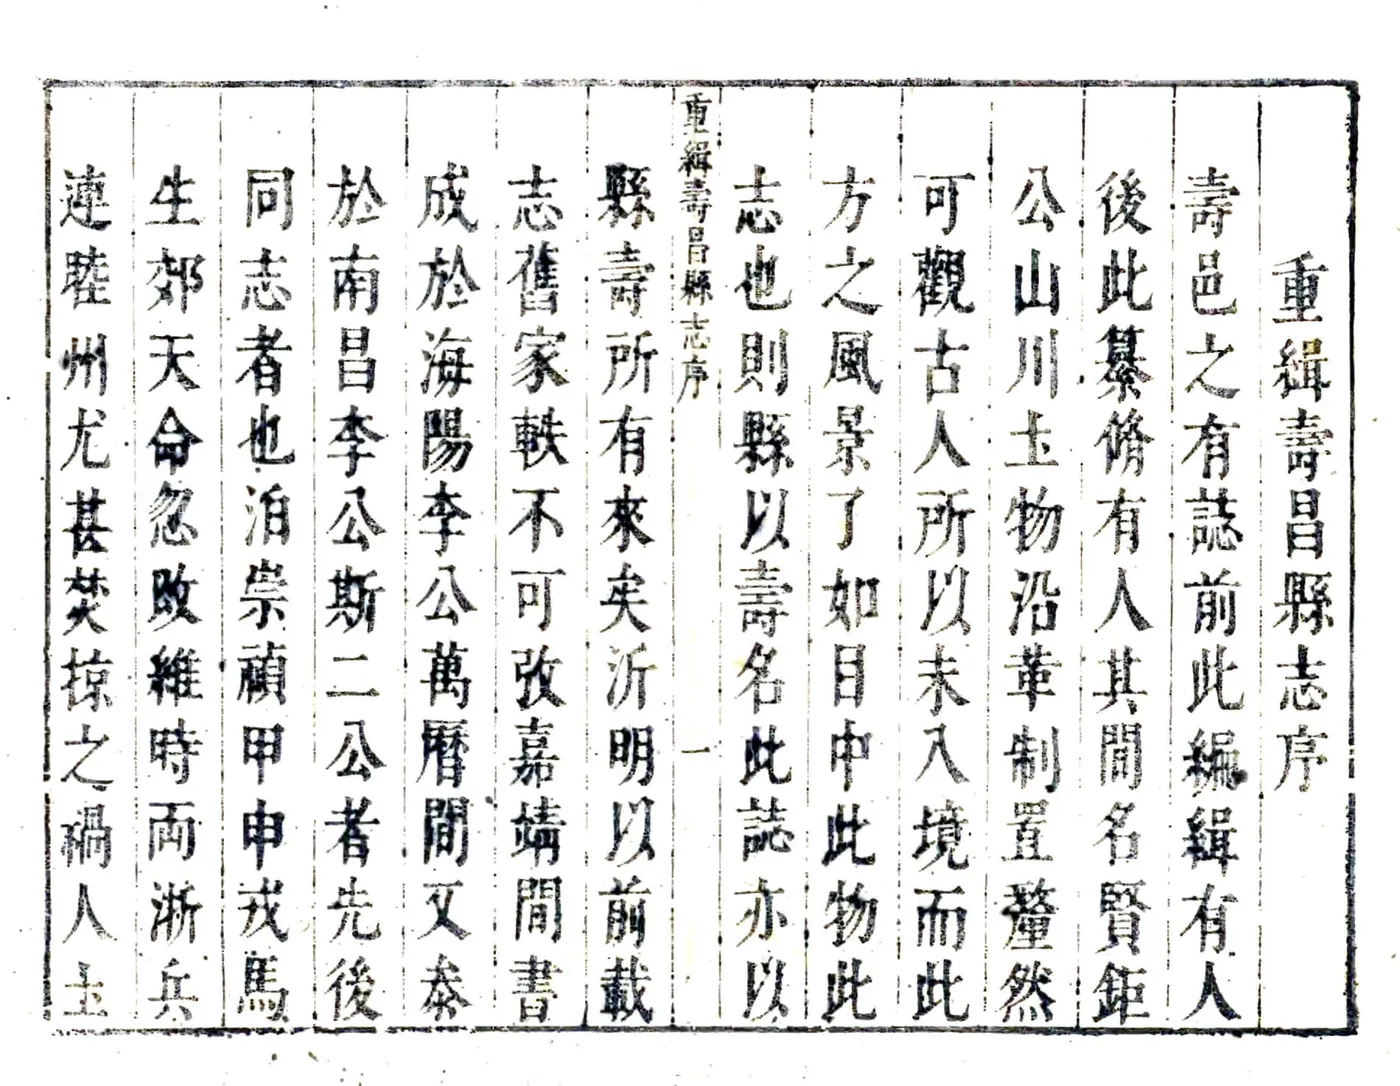 重緝壽昌縣志序
壽邑之有誌前此編緝有人
後此纂脩有人其間名賢鉅
公山川圡物沿革制置釐然
可觀古人所以未入境而此
方之風景了如目中此物此
志也則縣以壽名此誌亦以
重緝壽昌縣志序
一
縣壽所有來矣沂明以前載
志舊家軼不可攷嘉靖間書
成於海陽李公萬曆間又泰
於南昌李公斯二公者先後
同志者也洎崇禎甲申戎馬
生郊天命忽改維時両淅兵
連睦州尤甚焚掠之禍人圡